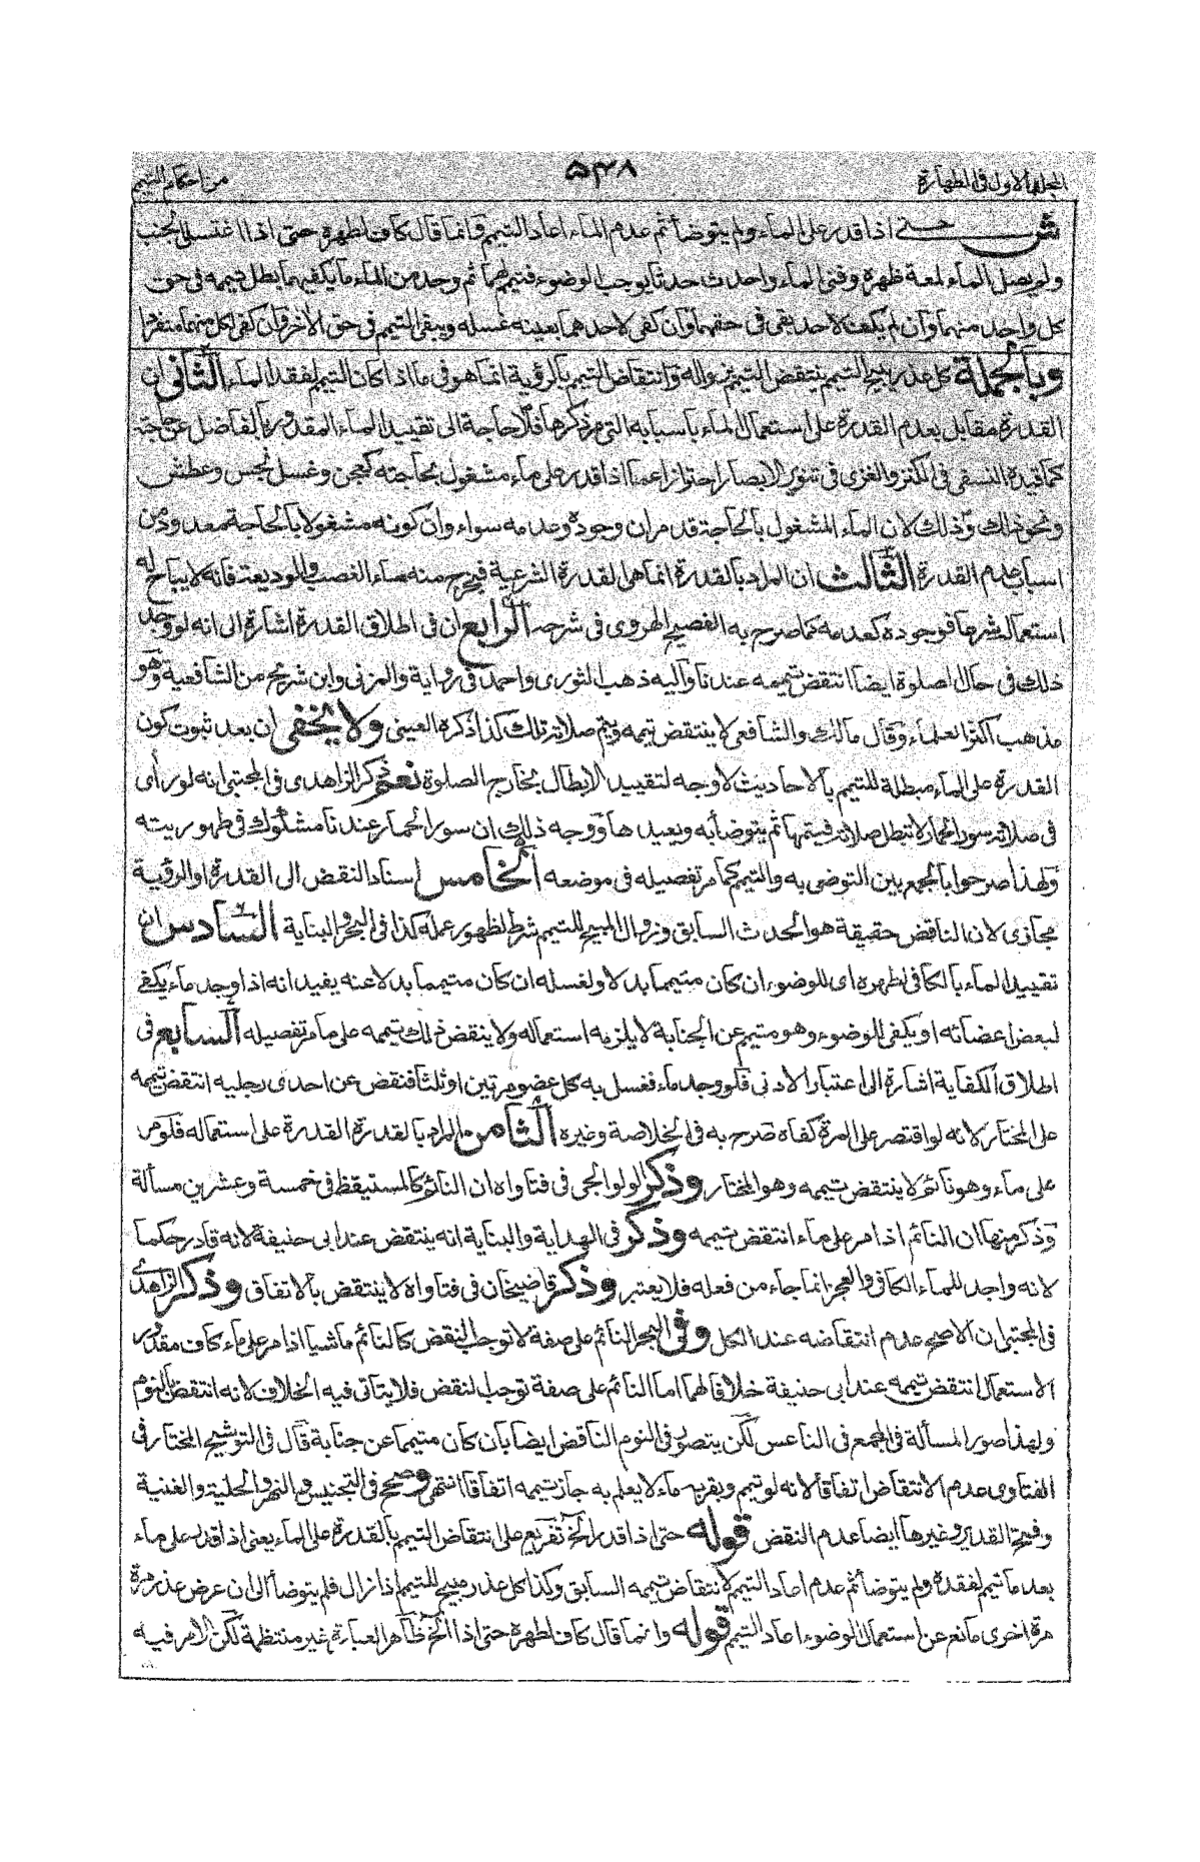 المجلد الاول فى الطهارة
۵۴۸
من احكام التيمم
ش حتى اذا قدر على الماء ولم يتوضأ ثم عدم الماء اعاد التيمم وانما قال كاف لطهره حتى اذا اغتسل الجنب
ولم يصل الماء لمعة ظهره وفنى الماء واحدث حدثا يوجب الوضوء فتيمم لهما ثم وجد من الماء ما يكفيهما بطل تيممه فى حق
كل واحد منهما وان لم يكف لاحد بقى فى حقهما وان كفى لاحدهما بعينه غسله ويبقى التيمم فى حق الاخر وان كفى لكل منهما منفردا
وبالجملة كل عذر يبيح التيمم ينتقض التيمم بزواله وانتقاض التيمم بالرؤية انما هو فى ما اذا كان التيمم لفقد الماء الثانى ان
القدرة مقابل بعدم القدرة على استعمال الماء باسبابه التى مر ذكرها فلا حاجة الى تقييد الماء المقدور بالفاضل عن حاجته
كما قيده النسفى فى الكنز والغزى فى تنوير الابصار احترازا عما اذا قدر على ماء مشغول بحاجته كعجن وغسل نجس وعطش
ونحو ذلك وذلك لان الماء المشغول بالحاجة قد مر ان وجوده وعدمه سواء وان كونه مشغولا بالحاجة معدود من
اسباب عدم القدرة الثالث ان المراد بالقدرة انما هى القدرة الشرعية فيخرج منه ماء الغصب والوديعة فانه لا يباح له
استعماله شرعا فوجوده كعدمه كما صرح به الفصيح الهروى فى شرحه الرابع ان فى اطلاق القدرة اشارة الى انه لو وجد
ذلك فى حال الصلوة ايضا انتقض تيممه عندنا واليه ذهب الثورى واحمد فى رواية والمزنى وابن شريح من الشافعية وهو
مذهب اكثر العلماء وقال مالك والشافعى لا ينتقض تيممه ويتم صلاته تلك كذا ذكره العينى ولا يخفى ان بعد ثبوت كون
القدرة على الماء مبطلة للتيمم بالاحاديث لا وجه لتقييد الابطال بخارج الصلوة نعم ذكر الزاهدى فى المجتبى انه لو رأى
فى صلاته سور الحمار لا تبطل صلاته فيتمها ثم يتوضأ به ويعيدها ووجه ذلك ان سور الحمار عندنا مشكوك فى طهوريته
ولهذا صرحوا بالجمع بين التوضى به والتيمم كما مر تفصيله فى موضعه الخامس اسناد النقض الى القدرة او الرؤية
مجازى لان الناقض حقيقة هو الحدث السابق وزوال المبيح للتيمم شرط لظهور عمله كذا فى البحر والبناية السادس ان
تقييد الماء بالكافى لطهره اى للوضوء ان كان متيمما بدلا ولغسله ان كان متيمما بدلا عنه يفيد انه اذا وجد ماء يكفى
لبعض اعضائه او يكفى للوضوء وهو متيمم عن الجنابة لا يلزمه استعماله ولا ينقض ذلك تيممه على ما مر تفصيله السابع فى
اطلاق الكفاية اشارة الى اعتبار الادنى فلو وجد ماء فغسل به كل عضو مرتين او ثلثا فنقض عن احدى رجليه انتقض تيممه
على المختار لانه لو اقتصر على المرة كفاه صرح به فى الخلاصة وغيره الثامن المراد بالقدرة القدرة على استعماله فلو مر
على ماء وهو نائم لا ينتقض تيممه وهو المختار وذكر الولوالجى فى فتاواه ان النائم كالمستيقظ فى خمسة وعشرين مسألة
وذكر منها ان النائم اذا مر على ماء انتقض تيممه وذكر فى الهداية والبناية انه ينتقض عند ابى حنيفة لانه قادر حكما
لانه واجد للماء الكافى والعجز انما جاء من فعله فلا يعتبر وذكر قاضيخان فى فتاواه لا ينتقض بالاتفاق وذكر الزاهدى
فى المجتبى ان الاصح عدم انتقاضه عند الكل وفى البحر النائم على صفة لا توجب النقض كالنائم ماشيا اذا مر على ماء كاف مقدور
الاستعمال انتقض تيممه عند ابى حنيفة خلافا لهما اما النائم على صفة توجب النقض فلا يتاتى فيه الخلاف لانه انتقض بالنوم
ولهذا صور المسألة فى المجمع فى الناعس لكن يتصور فى النوم الناقض ايضا بان كان متيمما عن جنابة قال فى التوشيح المختار فى
الفتاوى عدم الانتقاض اتفاقا لانه لو تيمم وبقربه ماء لا يعلم به جاز تيممه اتفاقا انتهى وصحح فى التجنيس والنهر والحلية والغنية
وفتح القدير وغيرها ايضا عدم النقض قوله حتى اذا قدر الخ تفريع على انتقاض التيمم بالقدرة على الماء يعنى اذا قدر على ماء
بعد ما تيمم لفقده ولم يتوضأ ثم عدم اعاد التيمم لانتقاض تيممه السابق وكذا كل عذر مبيح للتيمم اذا زال فلم يتوضأ الى ان عرض عذر مرة
مرة اخرى مانع عن استعمال الوضوء اعاد التيمم قوله وانما قال كاف لطهره حتى اذا الخ ظاهر العبارة غير منتظمة لكن الامر فيه